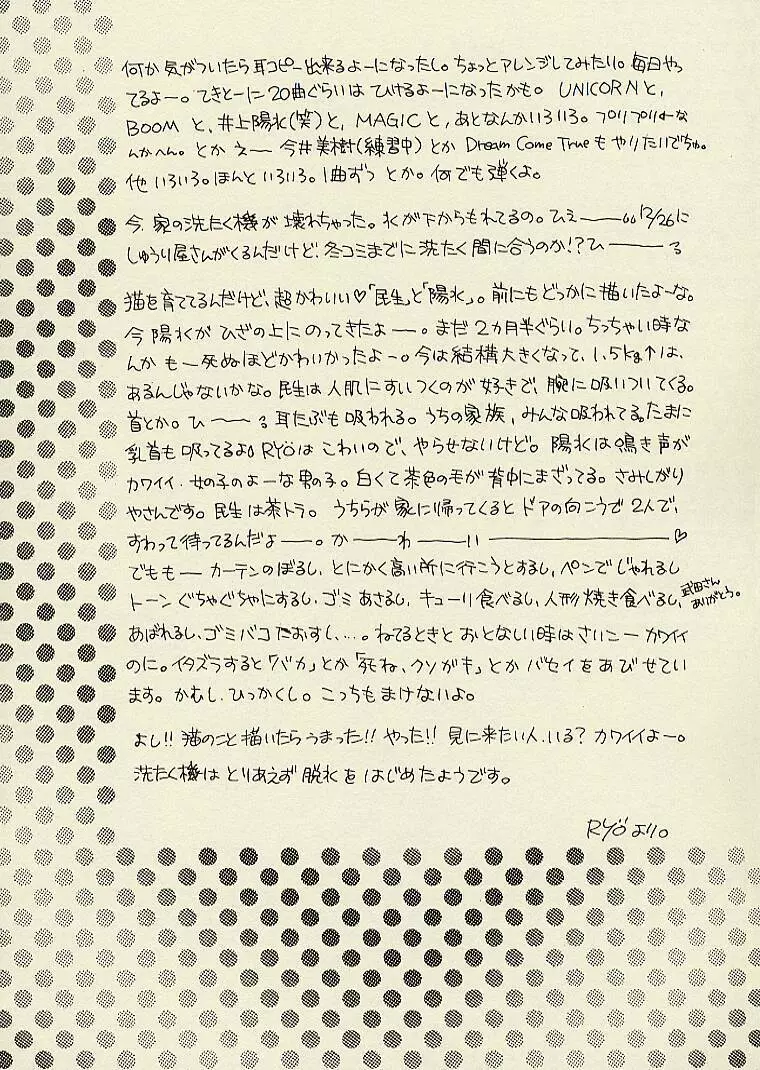 何か気がついたら耳コピー出来るよーになったし。ちょっとアレンジしてみたり。毎日やっ
てるよー。てきとーに20曲ぐらいはひけるよーになったかも。UNICORNと、
BOOMと、井上陽水(笑)と、MAGICと、あとなんかいろいろ。プリプリ
なんかへん。とかえー今井美樹(練習中)とかDream Come Trueもやりたいでちゅ。
他いろいろ。ほんといろいろ。1曲ずつとか。何でも弾くよ。
今、家の洗たく機が壊れちゃった。水が下からもれてるの。ひえー 12/26に
しゅうり屋さんがくるんだけど、冬コミまでに洗たく間に合うのか!?ひーーる
猫を育ててるんだけど、超かわいい♡「民生」と「陽水」。前にもどっかに描いたよーな。
今陽水がひざの上にのってきたよー。まだ2ヵ月半ぐらい。ちっちゃい時な
んかもー死ぬほどかわいかったよー。今は結構大きくなって、1.5kg↑は、
あるんじゃないかな。民生は人肌にすいつくのが好きで、腕に吸いついてくる。
首とか。ひーーる耳たぶも吸われる。うちの家族、みんな吸われてる。たまに
乳首も吸ってるよ。RYÖはこわいので、やらせないけど。陽水は鳴き声が
カワイイ、女の子のよーな男の子。白くて茶色の毛が背中にまざってる。さみしがり
やさんです。民生は茶トラ。うちらが家に帰ってくるとドアの向こうで2人で、
すわって待ってるんだよー。かーーわーーいーーーー♡
でももーカーテンのぼるし、とにかく高い所に行こうとするし、ペンでじゃれるし
トーンぐちゃぐちゃにするし、ゴミあさるし、キューリ食べるし、人形焼き食べるし、武田さん
ありがとう。
あばれるし、ゴミバコたおすし、…。ねてるときとおとなしい時はさいこーカワイイ
のに。イタズラすると「バカ」とか「死ね、クソガキ」とかバセイをあびせてい
ます。かむし、ひっかくし。こっちもまけないよ。
よし!!猫のこと描いたらうまった!!やった!!見に来たい人、いる?カワイイよー。
洗たく機はとりあえず脱水をはじめたようです。
RYÖより。